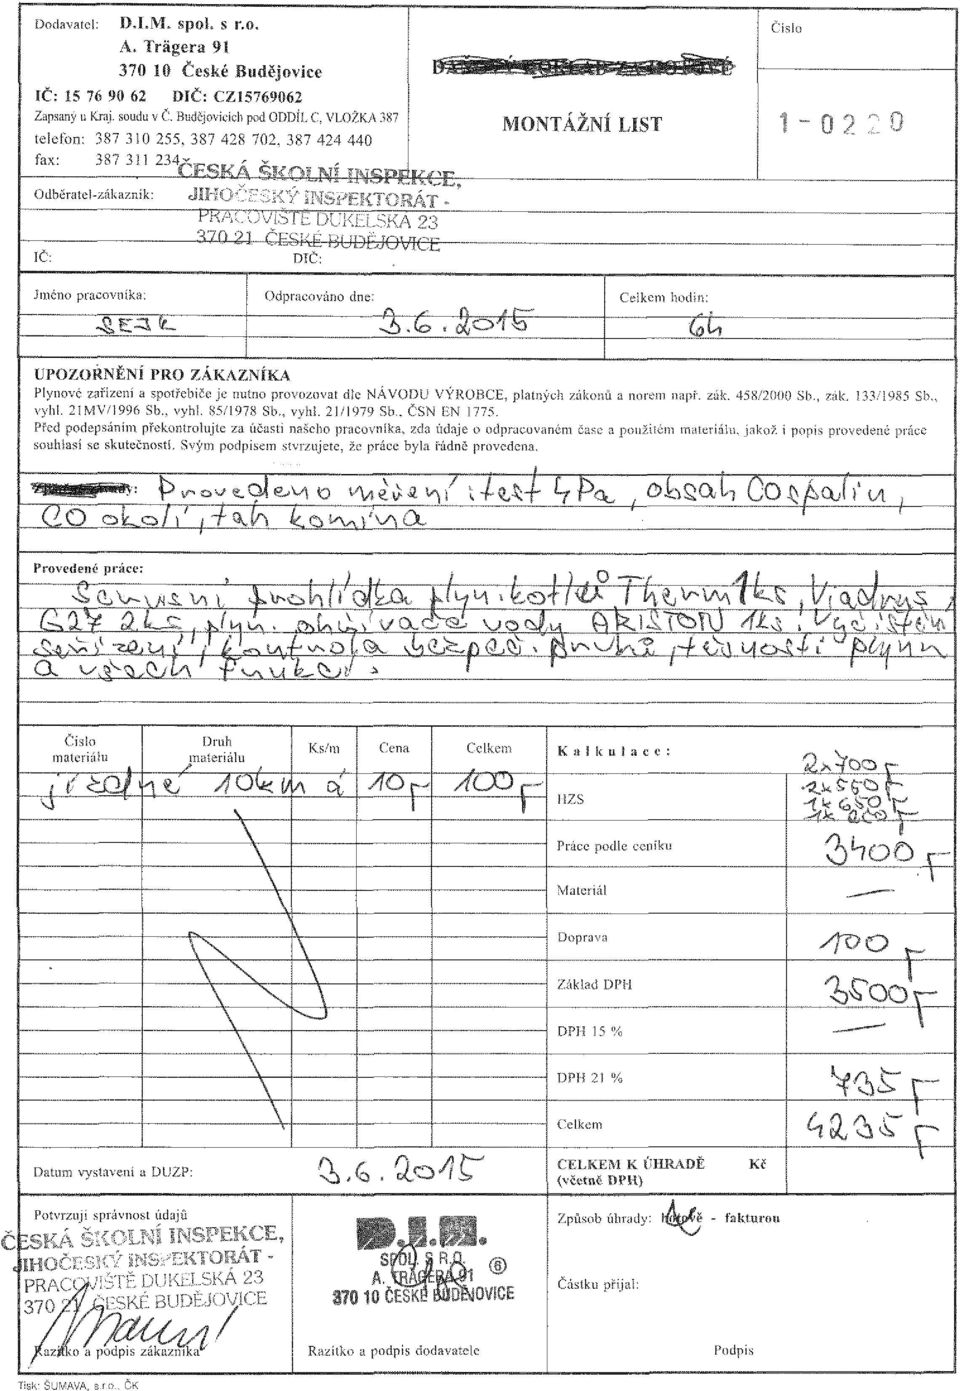 Dodavatel: D.I.M. spol. s r.o.
A. Trägera 91
370 10 České Budějovice
IČ: 15 76 90 62 DIČ: CZ15769062
Zapsaný u Kraj. soudu v Č. Budějovicích pod ODDÍL C, VLOŽKA 387
telefon: 387 310 255, 387 428 702, 387 424 440
fax: 387 311 234
MONTÁŽNÍ LIST
Číslo
1-0220
Odběratel-zákazník:
ČESKÁ ŠKOLNÍ INSPEKCE,
JIHOČESKÝ INSPEKTORÁT -
PRACOVIŠTĚ DUKELSKÁ 23
370 21 ČESKÉ BUDĚJOVICE
IČ: DIČ:
Jméno pracovníka: Odpracováno dne: Celkem hodin:
SEJK 3.6.2015 6h
UPOZORNĚNÍ PRO ZÁKAZNÍKA
Plynové zařízení a spotřebiče je nutno provozovat dle NÁVODU VÝROBCE, platných zákonů a norem např. zák. 458/2000 Sb., zák. 133/1985 Sb.,
vyhl. 21MV/1996 Sb., vyhl. 85/1978 Sb., vyhl. 21/1979 Sb., ČSN EN 1775.
Před podepsáním překontrolujte za účasti našeho pracovníka, zda údaje o odpracovaném čase a použitém materiálu, jakož i popis provedené práce
souhlasí se skutečností. Svým podpisem stvrzujete, že práce byla řádně provedena.
Provedeno měření: test 4Pa, obsah CO spalin,
CO okolí, tah komína
Provedené práce:
Servisní prohlídka plyn. kotlů Therm 1ks, Viadrus,
G27 2ks, plyn. ohřívače vody ARISTON 1ks. Vyčištěn
seřízení, kontrola bezpeč. prvků, těsnosti plynu
a všech funkcí.
Číslo materiálu Druh materiálu Ks/m Cena Celkem
jízdné 10km á 10,- 100,-
Kalkulace:
2x700,-
2x550,-
1x650,-
1x 200,-
HZS
Práce podle ceníku 3400,-
Materiál —
Doprava 100,-
Základ DPH 3500,-
DPH 15 % —
DPH 21 % 735,-
Celkem 4235,-
Datum vystavení a DUZP: 3.6.2015
CELKEM K ÚHRADĚ Kč
(včetně DPH)
Potvrzuji správnost údajů
ČESKÁ ŠKOLNÍ INSPEKCE,
JIHOČESKÝ INSPEKTORÁT -
PRACOVIŠTĚ DUKELSKÁ 23
370 21 ČESKÉ BUDĚJOVICE
Razítko a podpis zákazníka
D.I.M.
SPOL. S R.O.
A. TRÄGERA 91 6
370 10 ČESKÉ BUDĚJOVICE
Razítko a podpis dodavatele
Způsob úhrady: hotově - fakturou
Částku přijal:
Podpis
Tisk: ŠUMAVA, s.r.o., ČK